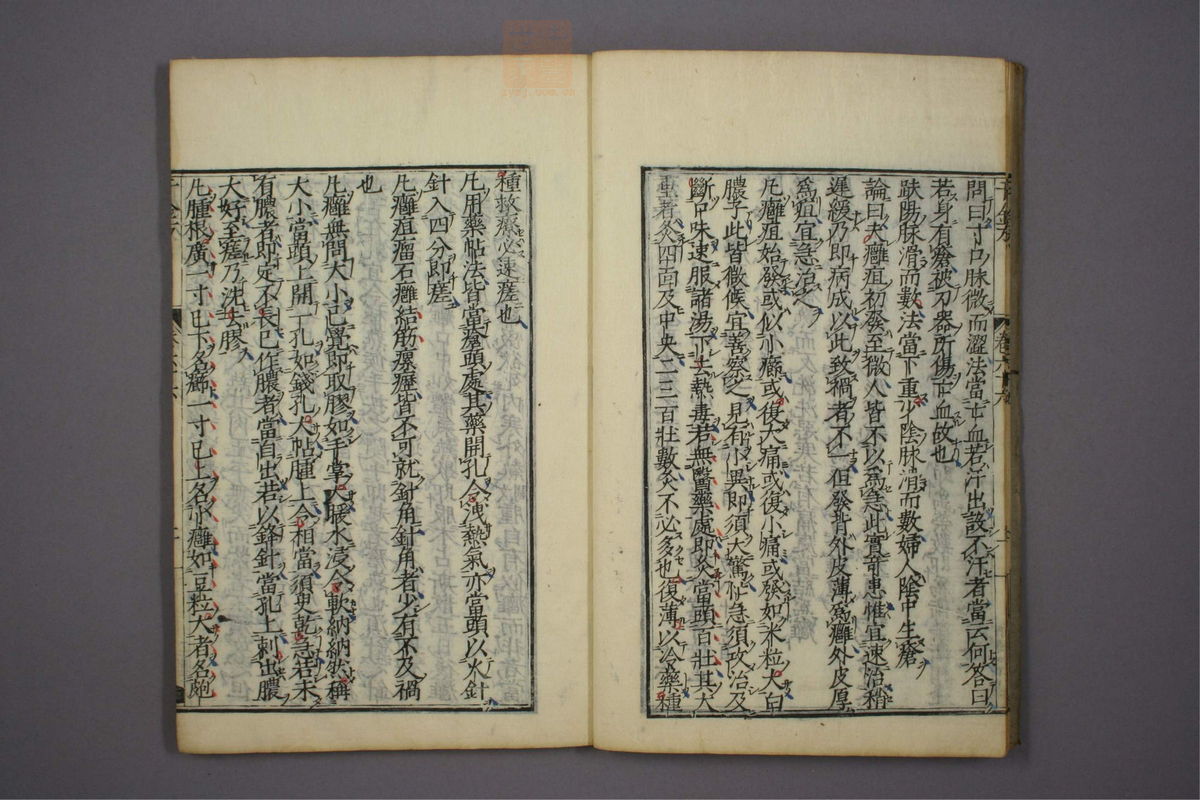 問曰寸口脉微而澀法當亡血若汗出設不汗者當云何荅曰
若身有瘡被刀器所傷亡血故也
趺陽脉滑而數法當下重少陰脉滑而數婦人陰中生瘡
論曰夫癰疽初發至微人皆不以爲急此實奇患惟宜速治稍
遲緩乃即病成以此致禍者不一但發背外皮薄爲癰外皮厚
爲疽宜急治之
凡癰疽始發或似小癤或復大痛或復小痛或發如米粒大白
膿子此皆微候宜善察之見有小異即須大驚忙急須攻治及
斷口味速服諸湯下去熱毒若無醫藥處即灸當頭百壯其大
重者灸四面及中央二三百壯數灸不必多也復薄以冷藥種
種救療必速瘥也
凡用藥帖法皆當瘡頭處其藥開孔令洩熱氣亦當頭以火針
針入四分即瘥
凡癰疽瘤石癰結筋瘰癧皆不可就針角針角者少有不及禍
也
凡癰無問大小已覺即取膠如手掌大暖水浸令軟納納然稱
大小當頭上開一孔如錢孔大帖腫上令相當須臾乾急若未
有膿者即定不長已作膿者當自出若以鋒針當孔上刺出膿
大好至瘥乃洗去膠
凡腫根廣一寸已下名癤一寸已上名小癰如豆粒大者名皰